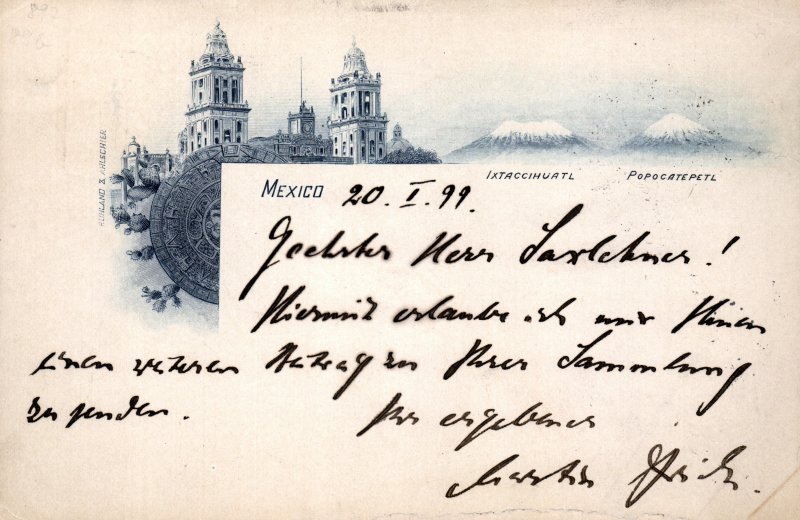 RUHLAND & AHLSCHIER
IXTACCIHUATL POPOCATEPETL
MEXICO 20. I. 99.
Geehrter Herr Saxlehner!
Hiermit erlaube ich mir Ihnen
einen weiteren Beitrag zu Ihrer Sammlung
zu senden.
Ihr ergebener
Martin